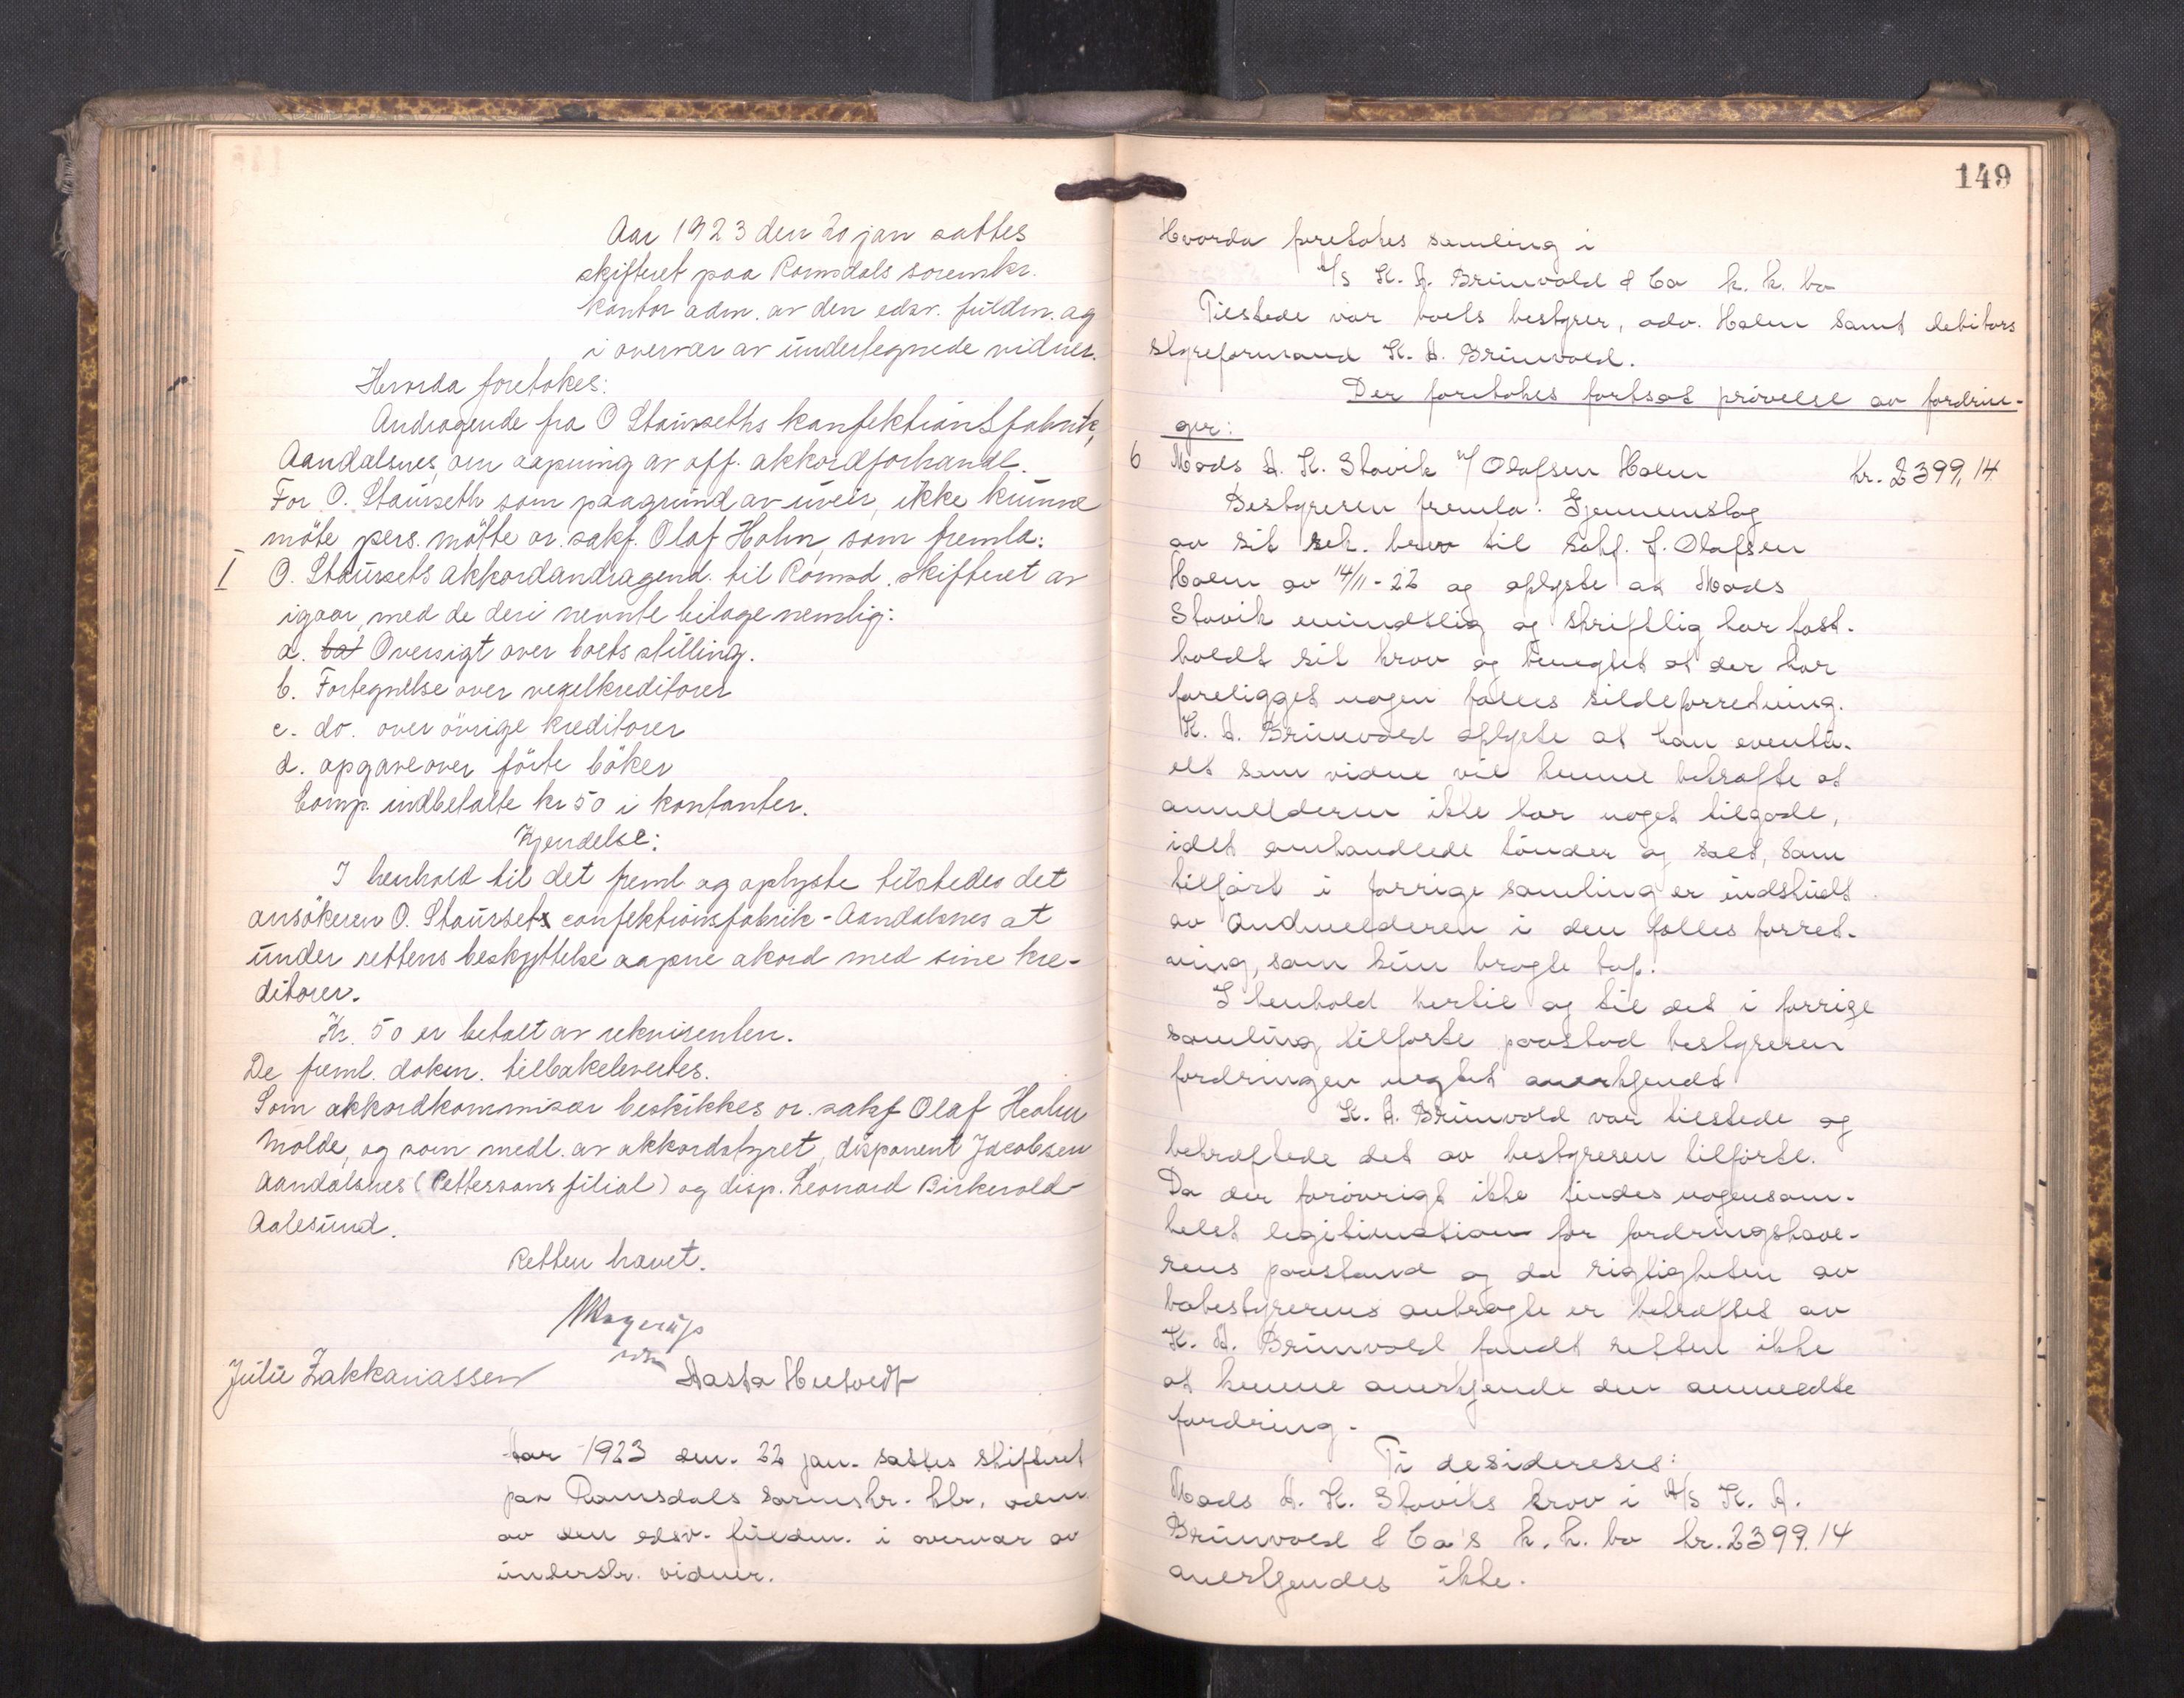 Aar 1923 den 20 jan sattes
skifteret paa Romsdals sorenskr.
kontor adm. av den edsv. fuldm. og
i overvær av undertegnede vidner.
Hvorda foretokes:
Andragende fra O Staurseths konfektionsfabrik,
Aandalsnes, om aapning av off. akkordforhandl.
For O. Staurseth som paagrund av uveir, ikke kunne
møte pers. møtte or. sakf. Olaf Holm, som fremla:
I O. Staursets akkordandragend. til Romsd. skifteret av
igaar, med de deri nevnte bilage nemlig:
a. bo Oversigt over boets stilling.
b. Fortegnelse over vexelkreditorer
c. do. over övrige kreditorer
d. opgave over förte böker
Comp. indbetalte kr 50 i kontanter.
Kjendelse:
I henhold til det freml og oplyste tilstedes det
ansökeren O. Staursets confektionsfabrik - Aandalsnes at
under rettens beskyttelse aapne akord med sine kre-
ditorer.
Kr. 50 er betalt av rekvirenten.
De freml. dokum. tilbakelevertes.
Som akkordkommisær beskikkes or. sakf Olaf Holm
Molde, og som medl. av akkordstyret, disponent Jacobsen
Aandalsnes (Pettersons filial) og disp. Leonard Birkevold
Aalesund.
Retten hævet.
Julie Zakkariassen Aasta
Aar 1923 den. 22 jan. sattes skifteret
paa Romsdals sorenskr. ktr. adm.
av den edsv. fuldm. i overvær av
underskr. vidner.
149
Hvorda foretokes samling i
A/S K. A. Brunvold & Co k. k. bo
Tilstede var boets bestyrer, adv. Holm samt debitors
styreformand K. A. Brunvold.
Der foretokes fortsat prövelse av fordrin-
ger:
6 Mads A. K. Stavik v/ Olafsen Holm kr. 2399,14
Bestyreren fremla: Gjennemslag
av sit rek. brev til sakf. J. Olafsen
Holm av 14/11-22 og oplyste at Mads
Stavik mundtlig og skriftlig har fast-
holdt sit krav og benegtet at der har
foreligget nogen fælles sildeforretning.
K. A. Brunvold oplyste at han eventu-
elt som vidne vil kunne bekræfte at
anmelderen ikke har noget tilgode,
idet omhandlede tönder og salt, som
tilfört i forrige samling er indskudt
av Andmelderen i den fælles forret-
ning, som kun bragte tap.
I henhold hertil og til det i forrige
samling tilförte paastod bestyreren
fordringen negtet anerkjendt
K. A. Brunvold var tilstede og
bekræftede det av bestyreren tilförte.
Da der forövrigt ikke findes nogensom-
helst legitimation for fordringshave-
rens paastand og da rigtigheten av
bobestyrerens anbragte er bekræftet av
K. A. Brunvold fandt retten ikke
at kunne anerkjende den anmeldte
fordring.
Ti desidereses:
Mads A. K. Staviks krav i A/S K. A.
Brunvold & Co's k. k. bo kr. 2399.14
anerkjendes ikke.